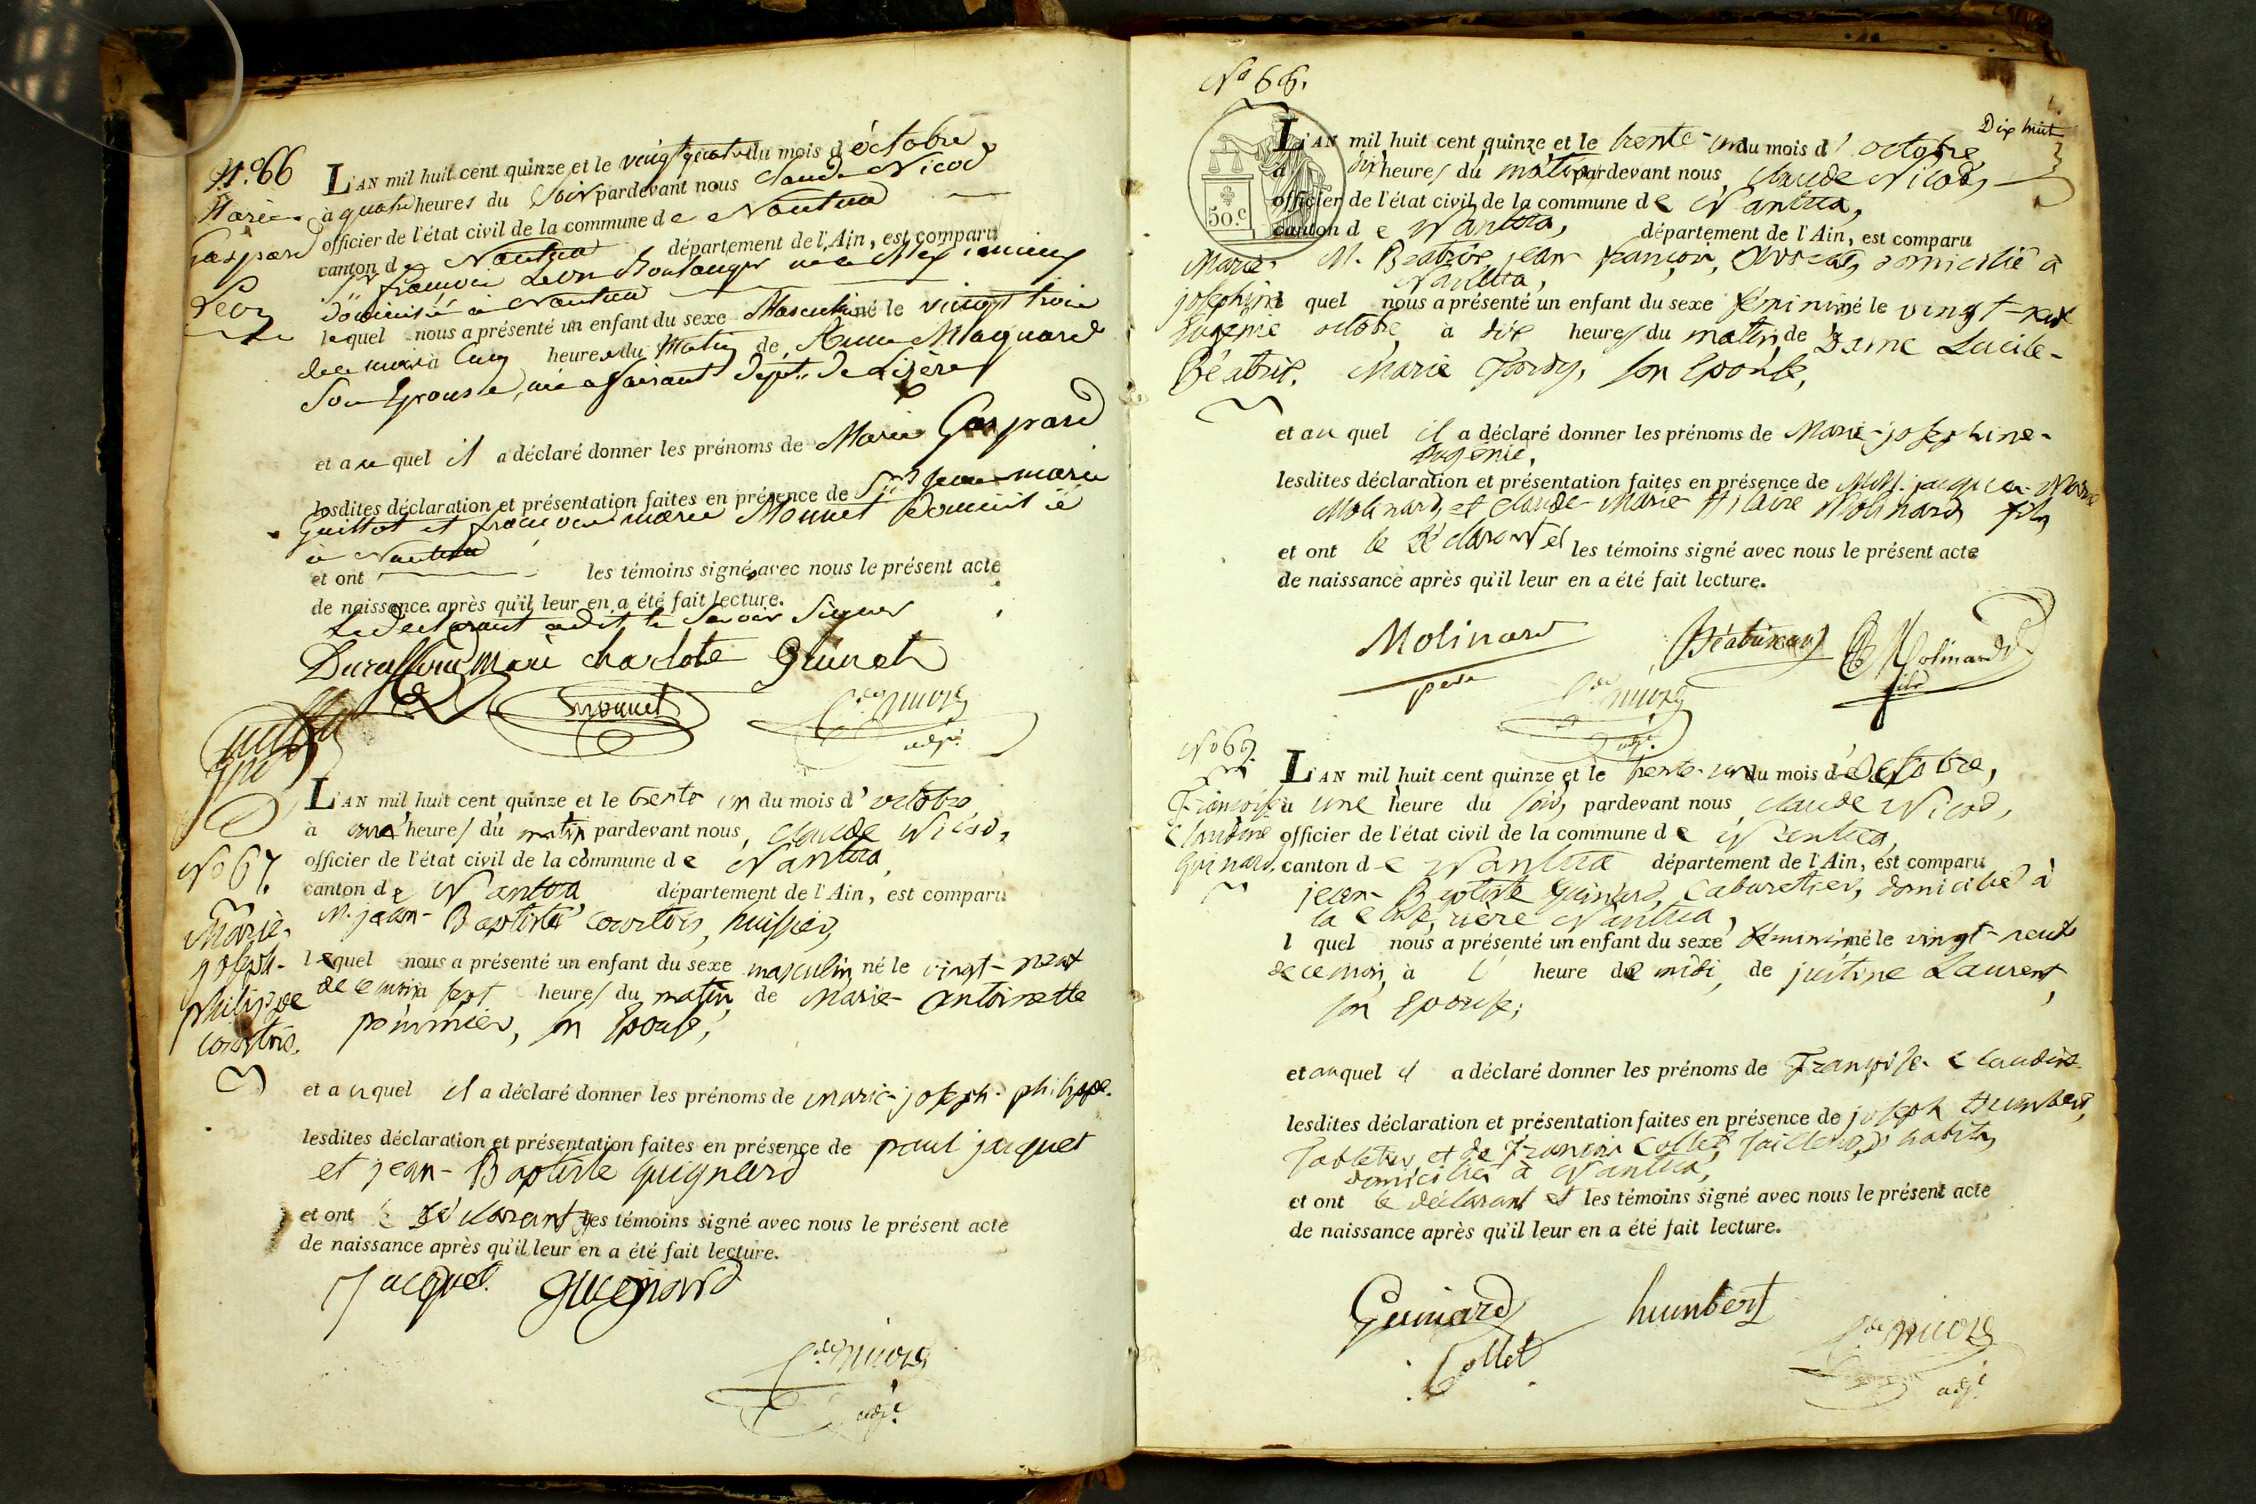 N.° 66
L'AN mil huit cent quinze et le vingt quatre du mois d'octobre
Marie
à quatre heures du Soir pardevant nous Claude Nicod
Gaspard
officier de l'état civil de la commune de Nantua
canton de Nantua département de l'Ain, est comparu
Léon
Sr. françois Léon Boulanger
domicilié à Nantua
lequel nous a présenté un enfant du sexe Masculin né le vingt trois
de ce mois à Cinq heures du Matin de Anne Maquard
Son Epouse, née a dépt. de Lizère
et auquel il a déclaré donner les prénoms de Marie Gaspard
lesdites déclaration et présentation faites en présence de Srs. Jean marie
Guillot et françois marie Monnet Domicilié
à Nantua
et ont les témoins signé avec nous le présent acte
de naissance après qu'il leur en a été fait lecture.
Le déclarant a dit le Savoir Signer
marie charlote
Monnet
Cde. nicod
adjt.
L'AN mil huit cent quinze et le trente un du mois d'octobre
à onze heures du matin pardevant nous, claude Nicod,
N° 67.
officier de l'état civil de la commune de Nantua,
canton de Nantua département de l'Ain, est comparu
Marie-
M. jean-Baptiste Courtois, huissier,
joseph-
lequel nous a présenté un enfant du sexe masculin né le vingt-neuf
philippe
de ce mois à sept heures du matin, de Marie-Antoinette
courtois.
pommier, son Epouse,
et auquel il a déclaré donner les prénoms de marie-joseph-philippe.
lesdites déclaration et présentation faites en présence de paul jacquet
et jean-Baptiste guignard
et ont le déclarant et les témoins signé avec nous le présent acte
de naissance après qu'il leur en a été fait lecture.
Jacquet. guignard
Cde. nicod
adjt.
N° 66.
Dix huit
L'AN mil huit cent quinze et le trente-un du mois d'octobre
à dix heures du matin pardevant nous, claude Nicod,
50.c
officier de l'état civil de la commune de Nantua,
canton de Nantua, département de l'Ain, est comparu
Marie-
M. Béatrix, jean françois, avocat, domicilié à
Nantua,
joséphine
lequel nous a présenté un enfant du sexe féminin né le vingt-neuf
Eugénie
octobre, à dix heures du matin, de Dame Lucile-
Béatrix.
Marie Tardy, son Epouse,
et auquel il a déclaré donner les prénoms de Marie-joséphine-
Eugénie,
lesdites déclaration et présentation faites en présence de MM. jacques-Marie
Molinard, et claude-Marie Hilaire Molinard fils,
et ont le déclarant et les témoins signé avec nous le présent acte
de naissance après qu'il leur en a été fait lecture.
Molinard
père
Béatrix
Molinard
fils
Cde. nicod
adjt.
N° 67.
L'AN mil huit cent quinze et le trente-un du mois d'octobre,
Françoise
à une heure du soir, pardevant nous claude Nicod,
claudine
officier de l'état civil de la commune de Nantua,
guinard.
canton de Nantua département de l'Ain, est comparu
jean-Baptiste guinard, Cabaretier, domicilié à
la rière Nantua,
lquel nous a présenté un enfant du sexe féminin né le vingt-neuf
de ce mois, à l'heure de midi, de justine Laurent,
son Epouse,
et auquel il a déclaré donner les prénoms de Françoise-claudine
lesdites déclaration et présentation faites en présence de joseph Humbert,
Tabletier, et de François Collet Tailleur, d'habits,
domiciliés à Nantua,
et ont le déclarant et les témoins signé avec nous le présent acte
de naissance après qu'il leur en a été fait lecture.
Guinard humbert
Collet
Cde. nicod
adjt.